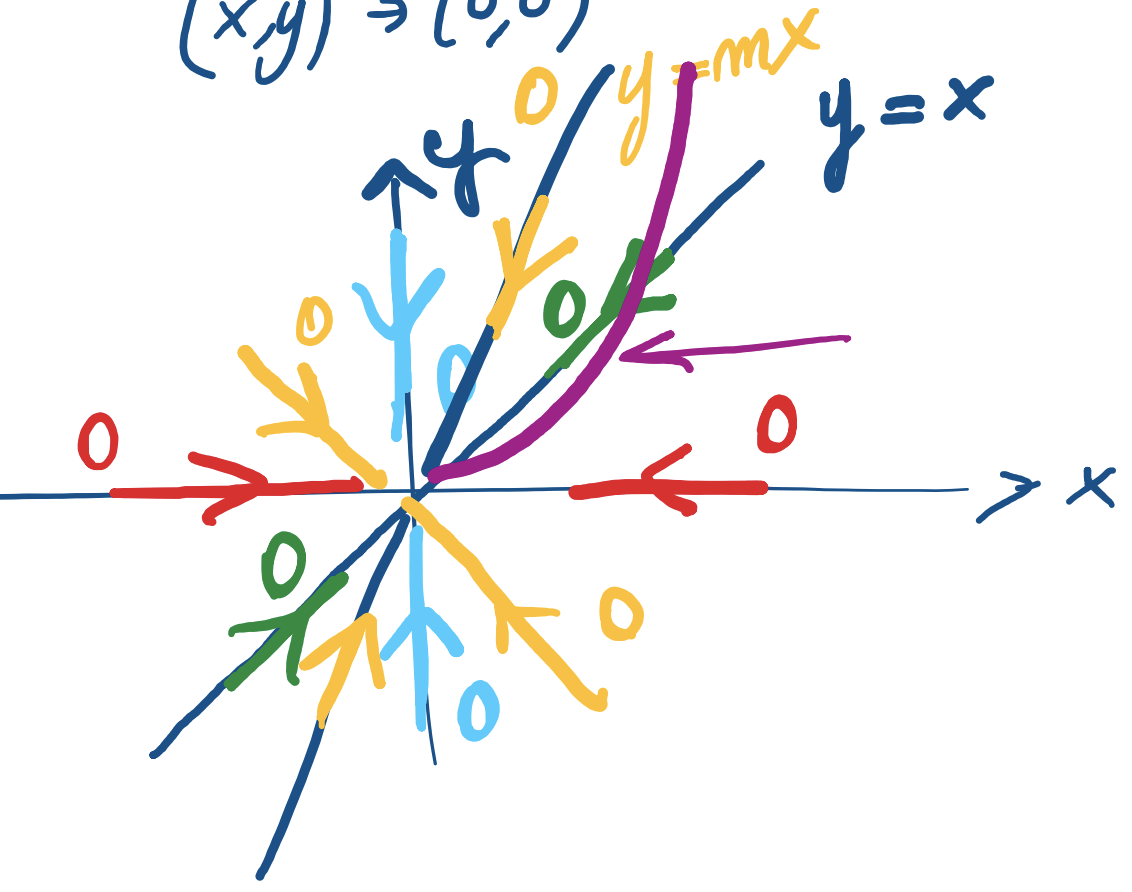 (x,y) → (0,0)
0 y = mx
y = x
y
0
0
0
0
0
0
x
0
0
0